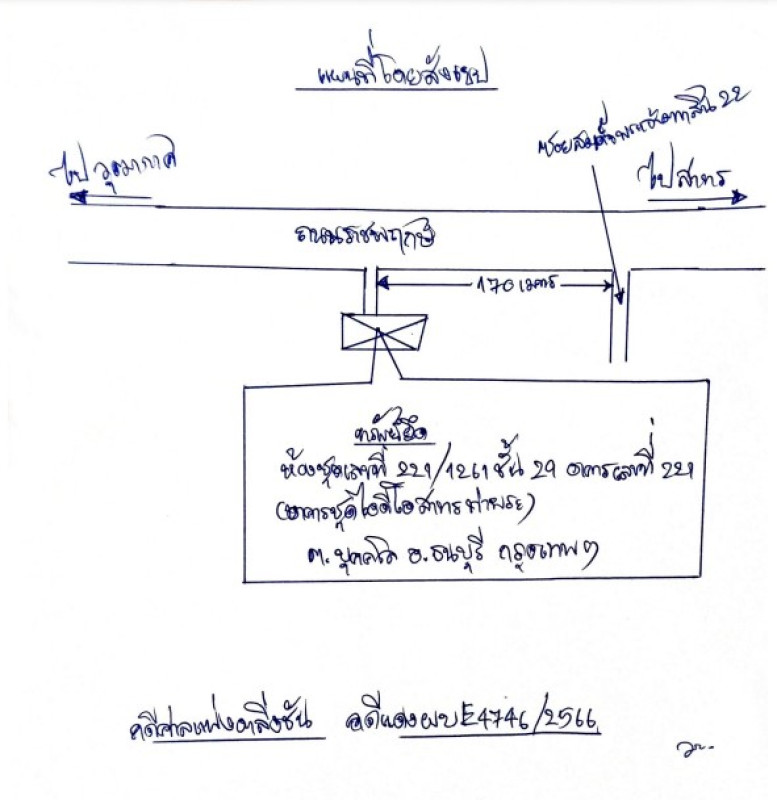 แผนที่โดยสังเขป
ซอยสมเด็จพระเจ้าตากสิน 22
ไปวุฒากาศ
ไปสาทร
ถนนราชพฤกษ์
170 เมตร
ทรัพย์ยึด
ห้องชุดเลขที่ 221/1261 ชั้น 29 อาคารเลขที่ 221
(อาคารชุดไอดีโอ สาทร ท่าพระ)
ต. บุคคโล อ. ธนบุรี กรุงเทพฯ
คดีศาลแพ่งตลิ่งชัน คดีแดง ผบE4746/2566